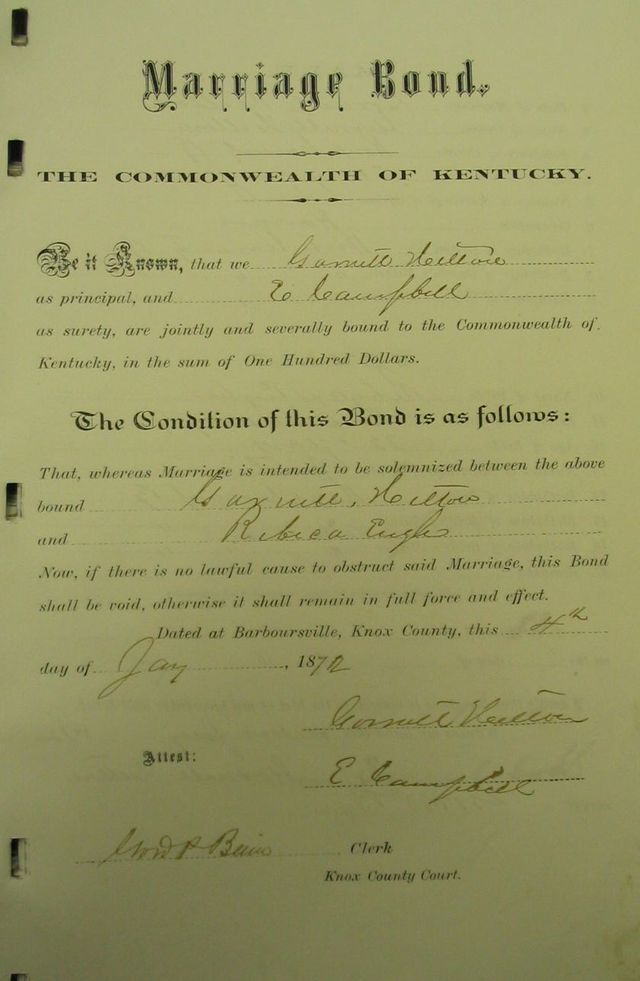 Marriage Bond.
THE COMMONWEALTH OF KENTUCKY.
Be it Known, that we Garnett Helton
as principal, and E Campbell
as surety, are jointly and severally bound to the Commonwealth of
Kentucky, in the sum of One Hundred Dollars.
The Condition of this Bond is as follows:
That, whereas Marriage is intended to be solemnized between the above
bound Garnett Helton
and Rebeca
Now, if there is no lawful cause to obstruct said Marriage, this Bond
shall be void, otherwise it shall remain in full force and effect.
Dated at Barboursville, Knox County, this 4th
day of Jay, 1872
Garnett Helton
Attest:
E Campbell
Clerk
Knox County Court.